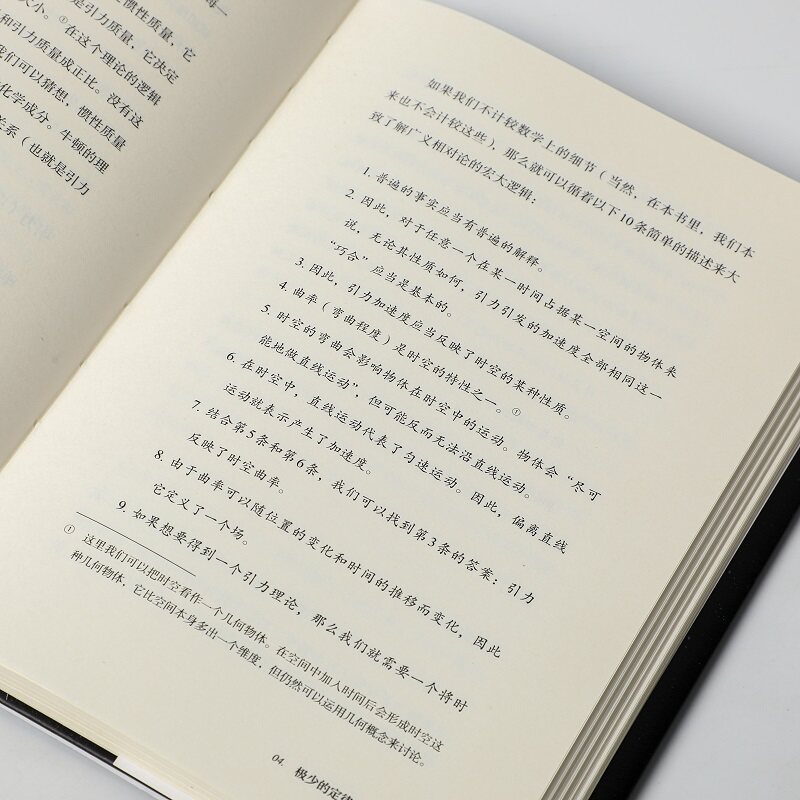 惯性质量，它
是引力质量，它决定
大小。①在这个理论的逻辑
和引力质量成正比。没有这
我们可以猜想，惯性质量
化学成分。牛顿的理
关系（也就是引力
如果我们不计较数学上的细节（当然，在本书里，我们本
来也不会计较这些），那么就可以循着以下10条简单的描述来大
致了解广义相对论的宏大逻辑：
1. 普遍的事实应当有普遍的解释。
2. 因此，对于任意一个在某一时间占据某一空间的物体来
说，无论其性质如何，引力引发的加速度全部相同这一
“巧合”应当是基本的。
3. 因此，引力加速度应当反映了时空的某种性质。
4. 曲率（弯曲程度）是时空的特性之一。①
5. 时空的弯曲会影响物体在时空中的运动。物体会“尽可
能地做直线运动”，但可能反而无法沿直线运动。
6. 在时空中，直线运动代表了匀速运动。因此，偏离直线
运动就表示产生了加速度。
7. 结合第5条和第6条，我们可以找到第3条的答案：引力
反映了时空曲率。
8. 由于曲率可以随位置的变化和时间的推移而变化，因此
它定义了一个场。
9. 如果想要得到一个引力理论，那么我们就需要一个将时
① 这里我们可以把时空看作一个几何物体。在空间中加入时间后会形成时空这
种几何物体，它比空间本身多出一个维度，但仍然可以运用几何概念来讨论。
04. 极少的定律